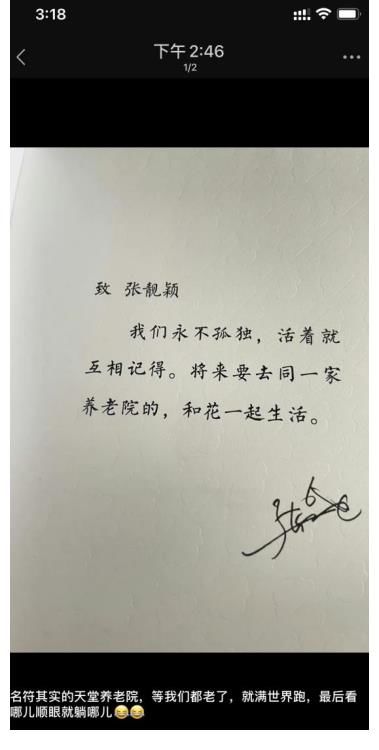 3:18
下午 2:46
1/2
致 张靓颖
我们永不孤独，活着就
互相记得。将来要去同一家
养老院的，和花一起生活。
名符其实的天堂养老院，等我们都老了，就满世界跑，最后看
哪儿顺眼就躺哪儿😂😂